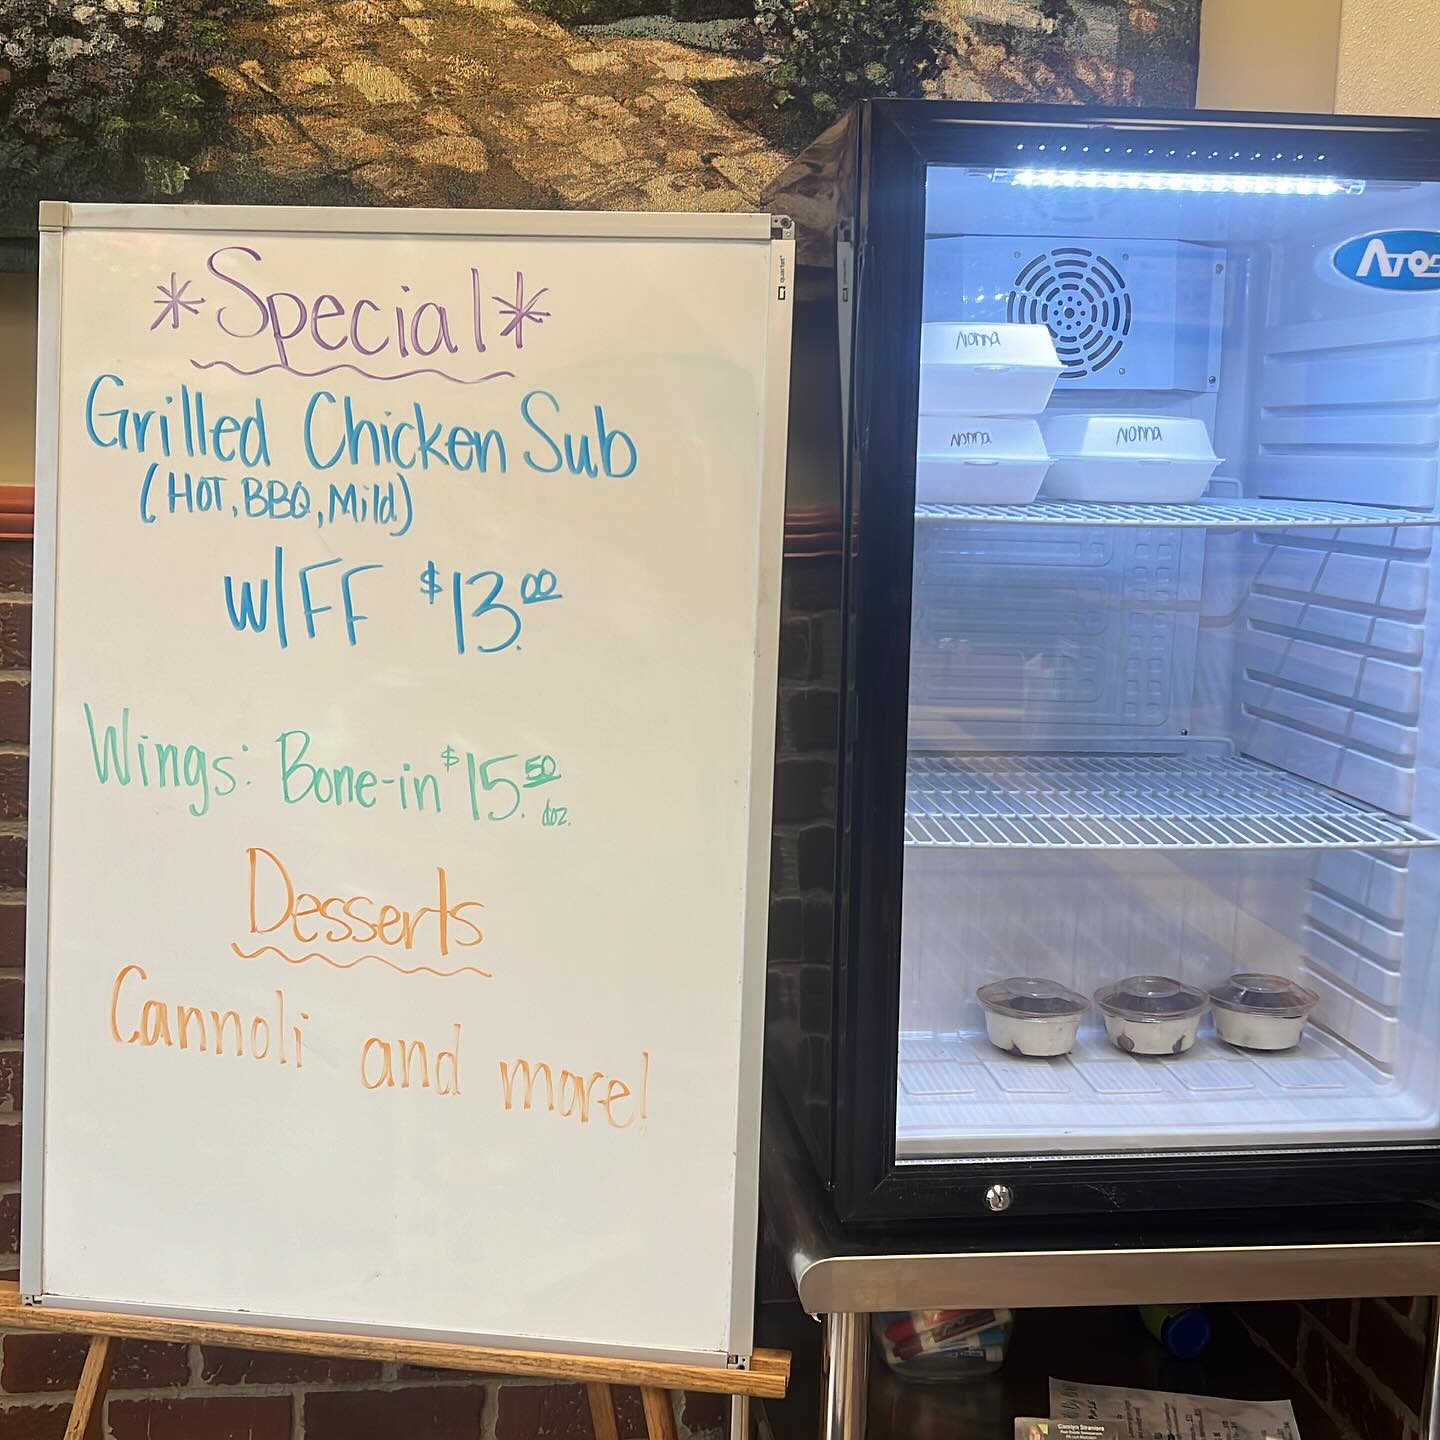 *Special*
Grilled Chicken Sub
(HOT, BBQ, Mild)
W/FF $13.00
Wings: Bone-in $15.50 doz.
Desserts
Cannoli and more!
quartet
Nonna
Nonna
Nonna
Carolyn Straniere